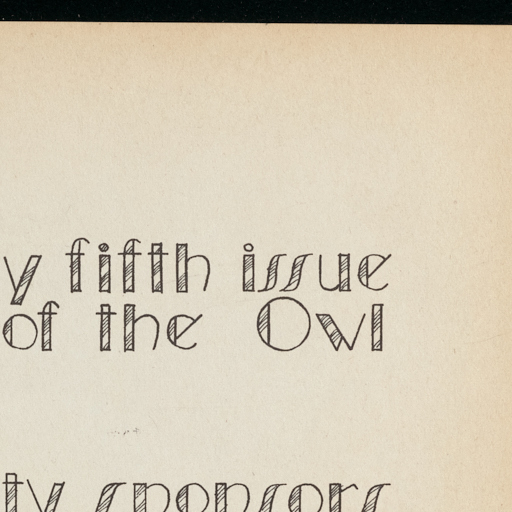 y fifth issue
of the Owl
ty sponsors